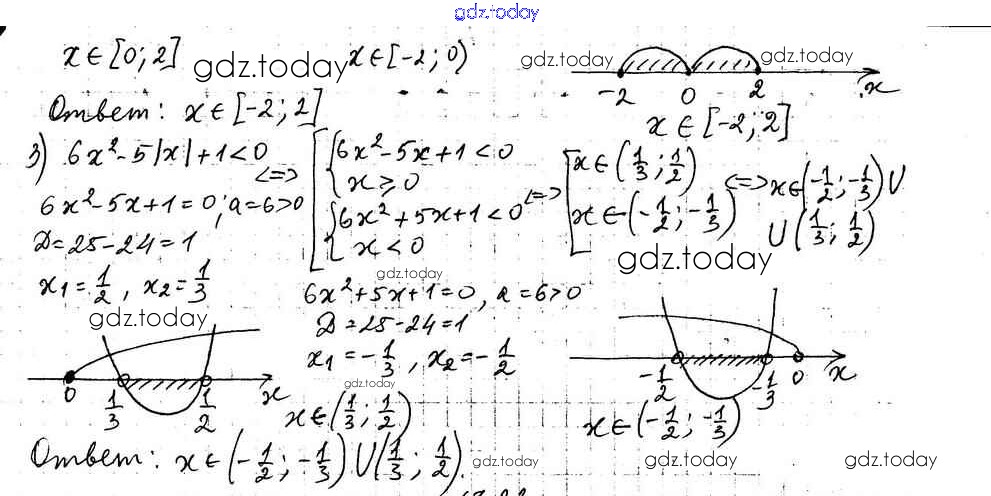 gdz.today
x ∈ [0; 2] gdz.today x ∈ [-2; 0) gdz.today gdz.today
-2 0 2 x
Ответ: x ∈ [-2; 2] x ∈ [-2; 2]
3) 6x² - 5|x| + 1 < 0 <=> [ { 6x² - 5x + 1 < 0
x ⩾ 0
{ 6x² + 5x + 1 < 0
x < 0
<=> [ x ∈ (1/3; 1/2)
x ∈ (-1/2; -1/3)
<=> x ∈ (-1/2; -1/3) ∪
∪ (1/3; 1/2)
6x² - 5x + 1 = 0; a = 6 > 0
D = 25 - 24 = 1
x₁ = 1/2, x₂ = 1/3
gdz.today
gdz.today
gdz.today
6x² + 5x + 1 = 0, a = 6 > 0
D = 25 - 24 = 1
x₁ = -1/3, x₂ = -1/2
gdz.today
0 1/3 1/2 x
x ∈ (1/3; 1/2)
-1/2 -1/3 0 x
x ∈ (-1/2; -1/3)
Ответ: x ∈ (-1/2; -1/3) ∪ (1/3; 1/2). gdz.today gdz.today gdz.today